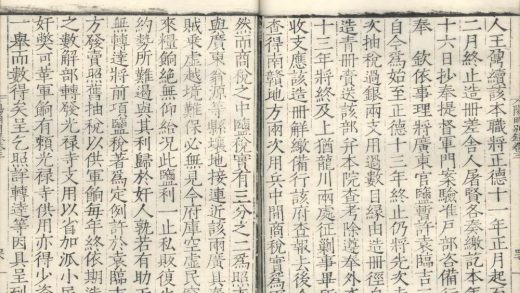 人王萬續該本職將正德十 年正月起至
二月終止造冊差舍人屠賢各奏繳訖本年
十六日抄奉提督軍門案驗准戶部咨備
奉 欽依事理將廣東官鹽暫許袁臨吉
自今為始至正德十三年終止仍將先次
次抽稅過銀兩支用過數目緣由造冊徑
造青冊賫送該部并本院查考除遵奉外
十三年將終及上猶龍川兩處征剿事畢
收支應該造冊觧繳備行該府查報上後今
查得南贛地方兩次用兵中間商稅實爲
然而商稅之中鹽稅實有三分之二爲照
與廣東翁源等縣壤地接連近該兩廣具
賊乘虛越境難保必無見今府庫空虛民
來糧餉絕無仰給況此鹽利一止私販復
約勢所難遏與其利歸於奸人孰若有助
無轉達將前項鹽稅著爲定例許於袁臨吉
方發賣照舊抽稅以供軍餉每年終依期造
之數解部轉發光祿寺支用以省加派小民
奸弊可革軍餉有頼光祿寺供用亦得少資
一舉而數得矣呈乞照詳轉達等因具呈到